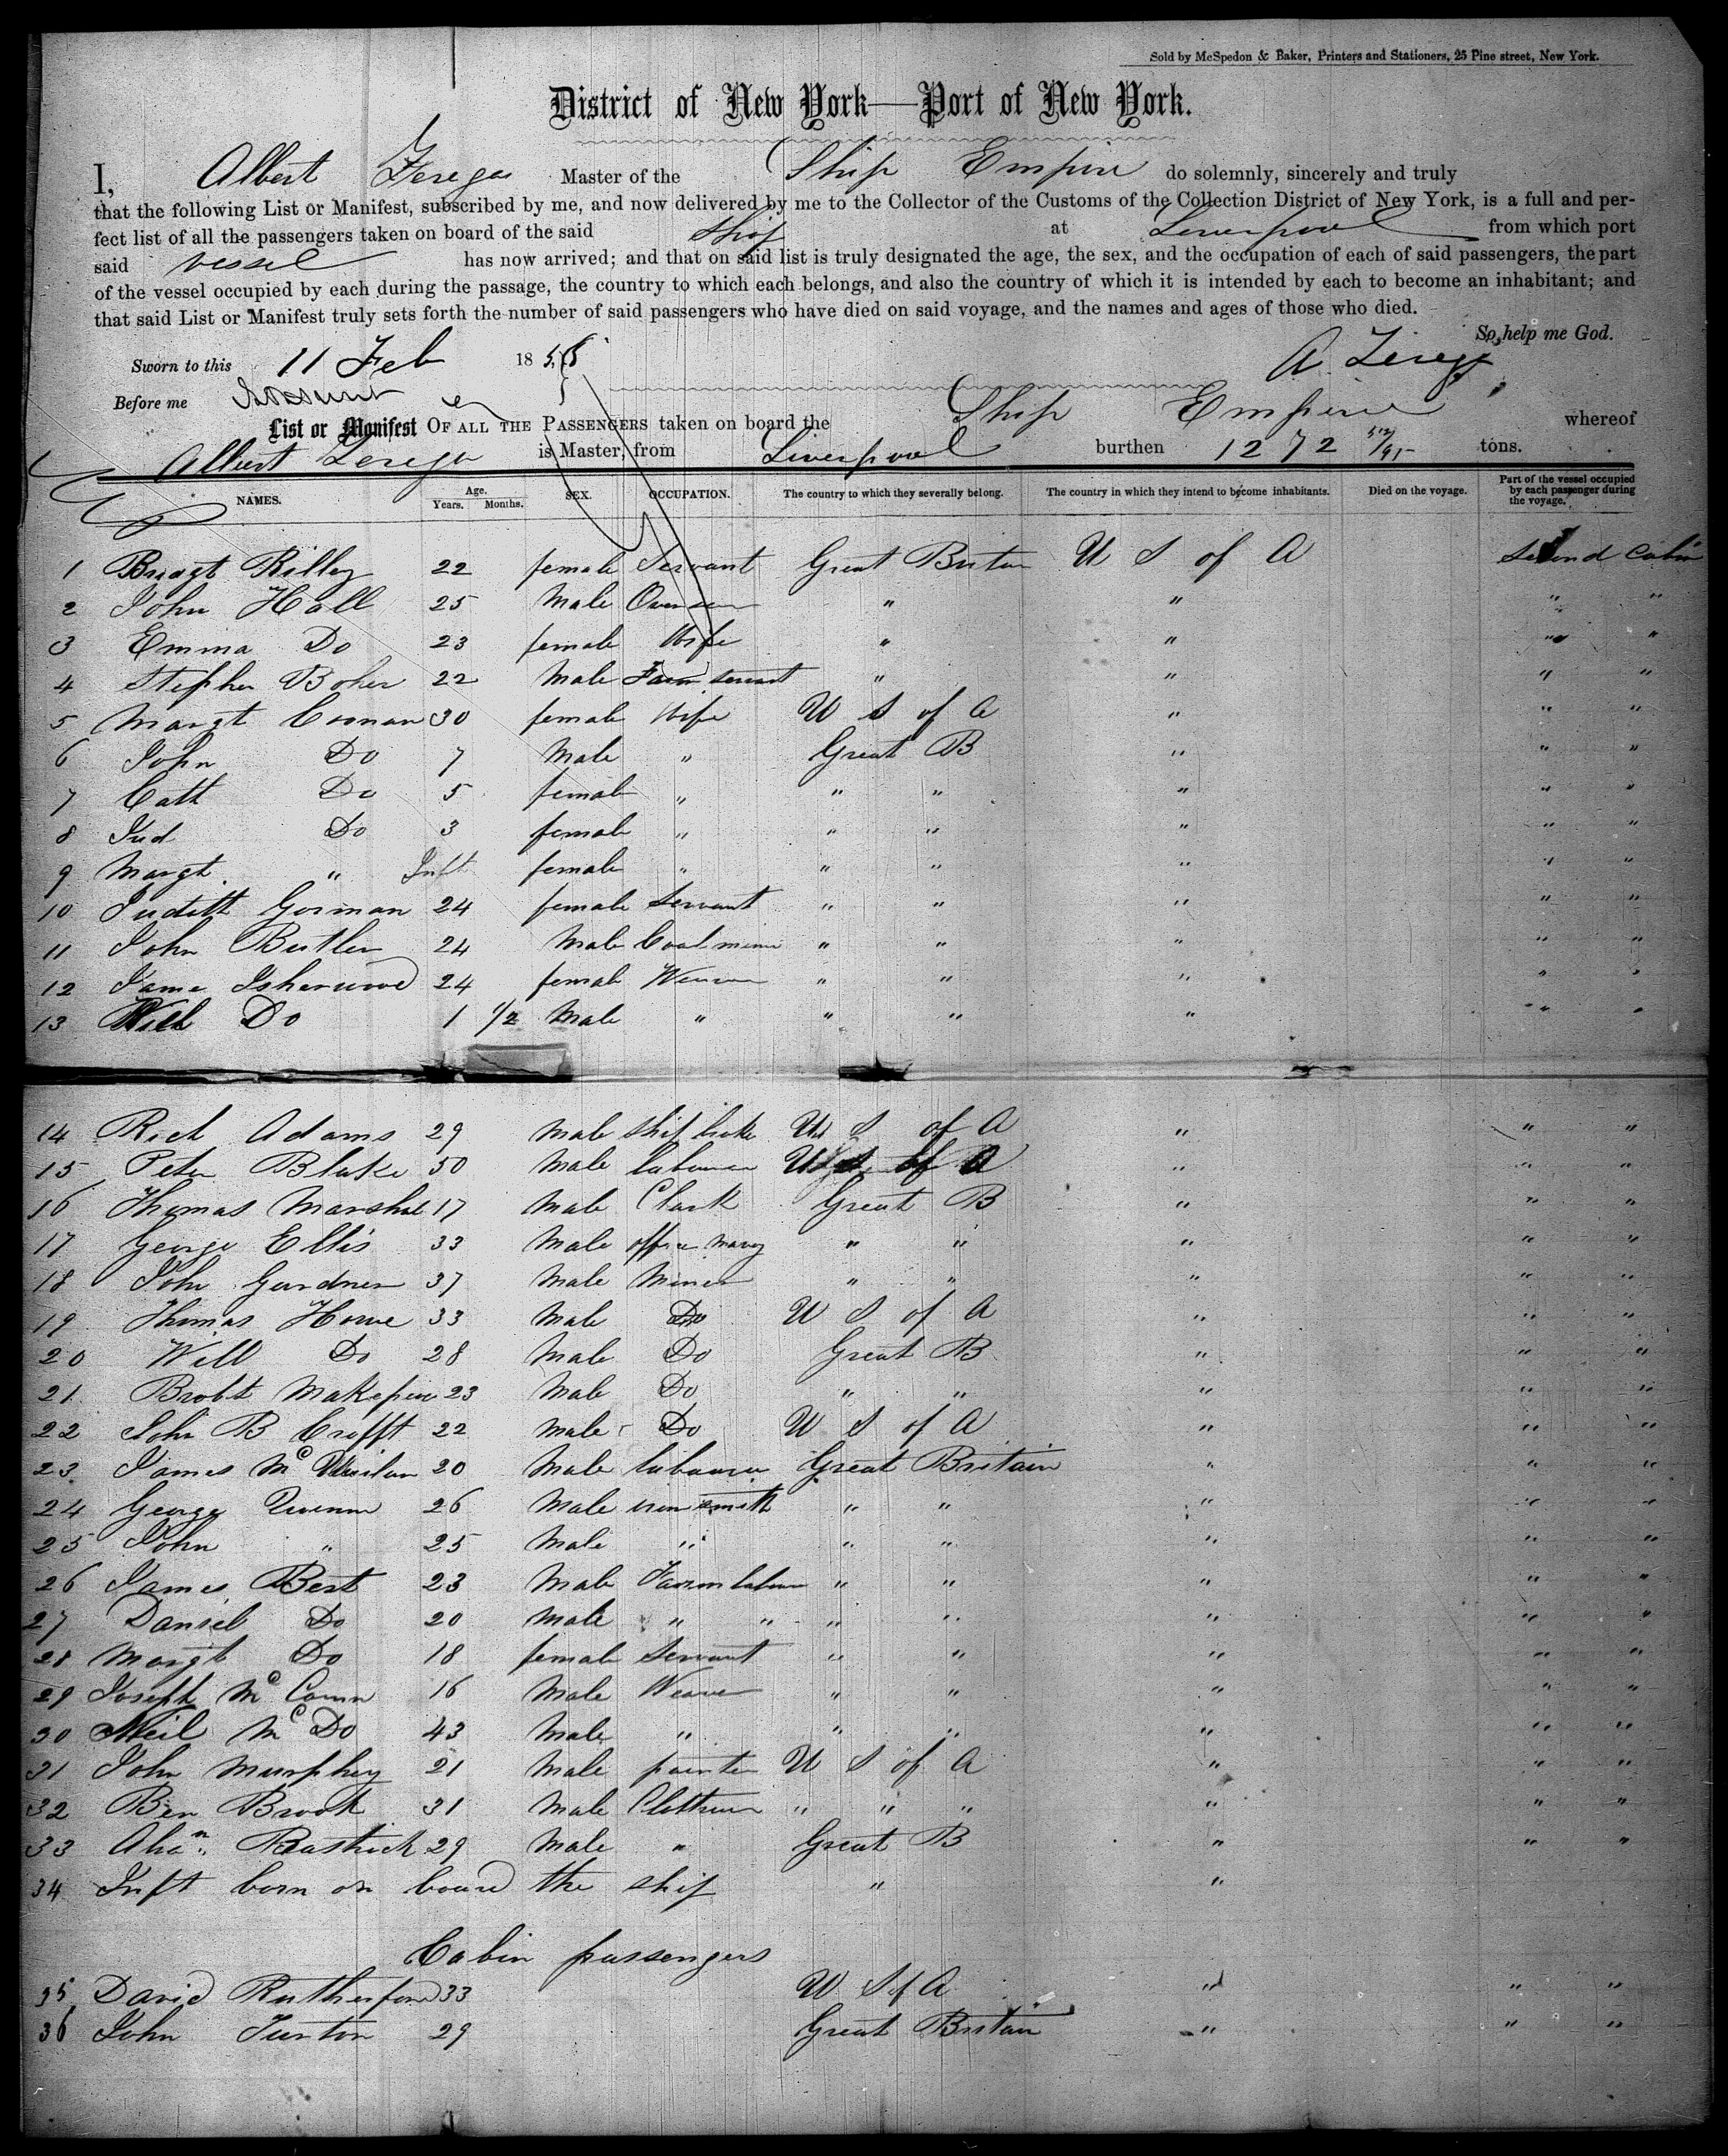 Sold by McSpedon & Baker, Printers and Stationers, 25 Pine street, New York.
District of New York—Port of New York.
I, Albert Zerega Master of the Ship Empire do solemnly, sincerely and truly
that the following List or Manifest, subscribed by me, and now delivered by me to the Collector of the Customs of the Collection District of New York, is a full and per-
fect list of all the passengers taken on board of the said Ship at Liverpool from which port
said vessel has now arrived; and that on said list is truly designated the age, the sex, and the occupation of each of said passengers, the part
of the vessel occupied by each during the passage, the country to which each belongs, and also the country of which it is intended by each to become an inhabitant; and
that said List or Manifest truly sets forth the number of said passengers who have died on said voyage, and the names and ages of those who died.
So help me God.
Sworn to this 11 Feb 185 A. Zerega
Before me
List or Manifest OF ALL THE PASSENGERS taken on board the Ship Empire whereof
Albert Zerega is Master, from Liverpool burthen 1272 /95 tons.
NAMES. Age. Years. Months. SEX. OCCUPATION. The country to which they severally belong. The country in which they intend to become inhabitants. Died on the voyage. Part of the vessel occupied by each passenger during the voyage.
1 Bridgt Rilley 22 female Servant Great Britan U S of A Second Cabin
2 John Hall 25 Male " " " "
3 Emma Do 23 female Wife " " " "
4 Stephen Boker 22 Male Farm servant " " " "
5 Margt Coonan 30 female Wife U S of A " " "
6 John Do 7 Male " Great B " " "
7 Cath Do 5 female " " " " " "
8 Jud Do 3 female " " " " " "
9 Margt " Inft female " " " " " "
10 Judith Gorman 24 female Servant " " " " "
11 John Butler 24 Male Coal miner " " " " "
12 Jame Isherwood 24 female Weaver " " " " "
13 Will Do 1 1/2 Male " " " " " "
14 Rich Adams 29 Male ship U S of A " " "
15 Peter Blake 50 Male labourer U S of A " " "
16 Thomas Marshal 17 Male Clark Great B " " "
17 George Ellis 33 Male " " " " "
18 John Gardner 37 Male Miner " " " " "
19 Thomas Howe 33 Male Do U S of A " " "
20 Will Do 28 Male Do Great B " " "
21 Robt 23 Male Do " " " " "
22 John B Crofft 22 Male Do U S of A " " "
23 James Mc 20 Male labourer Great Britain " " "
24 George 26 Male iron smith " " " " "
25 John " 25 Male " " " " " "
26 James Best 23 Male Farm labour " " " " "
27 Daniel Do 20 Male " " " " " " "
28 Margt Do 18 female Servant " " " " "
29 Joseph Mc Cann 16 Male Weaver " " " " "
30 Neil Mc Do 43 Male " " " " " "
31 John Murphey 21 Male painter U S of A " " "
32 Ben Brook 31 Male Clothier " " " " " "
33 Abam Bastrick 29 Male " Great B " " "
34 Inft born on board the ship " "
Cabin passengers
35 David Rutherford 33 U S of A " " "
36 John Turton 29 Great Britain " " "